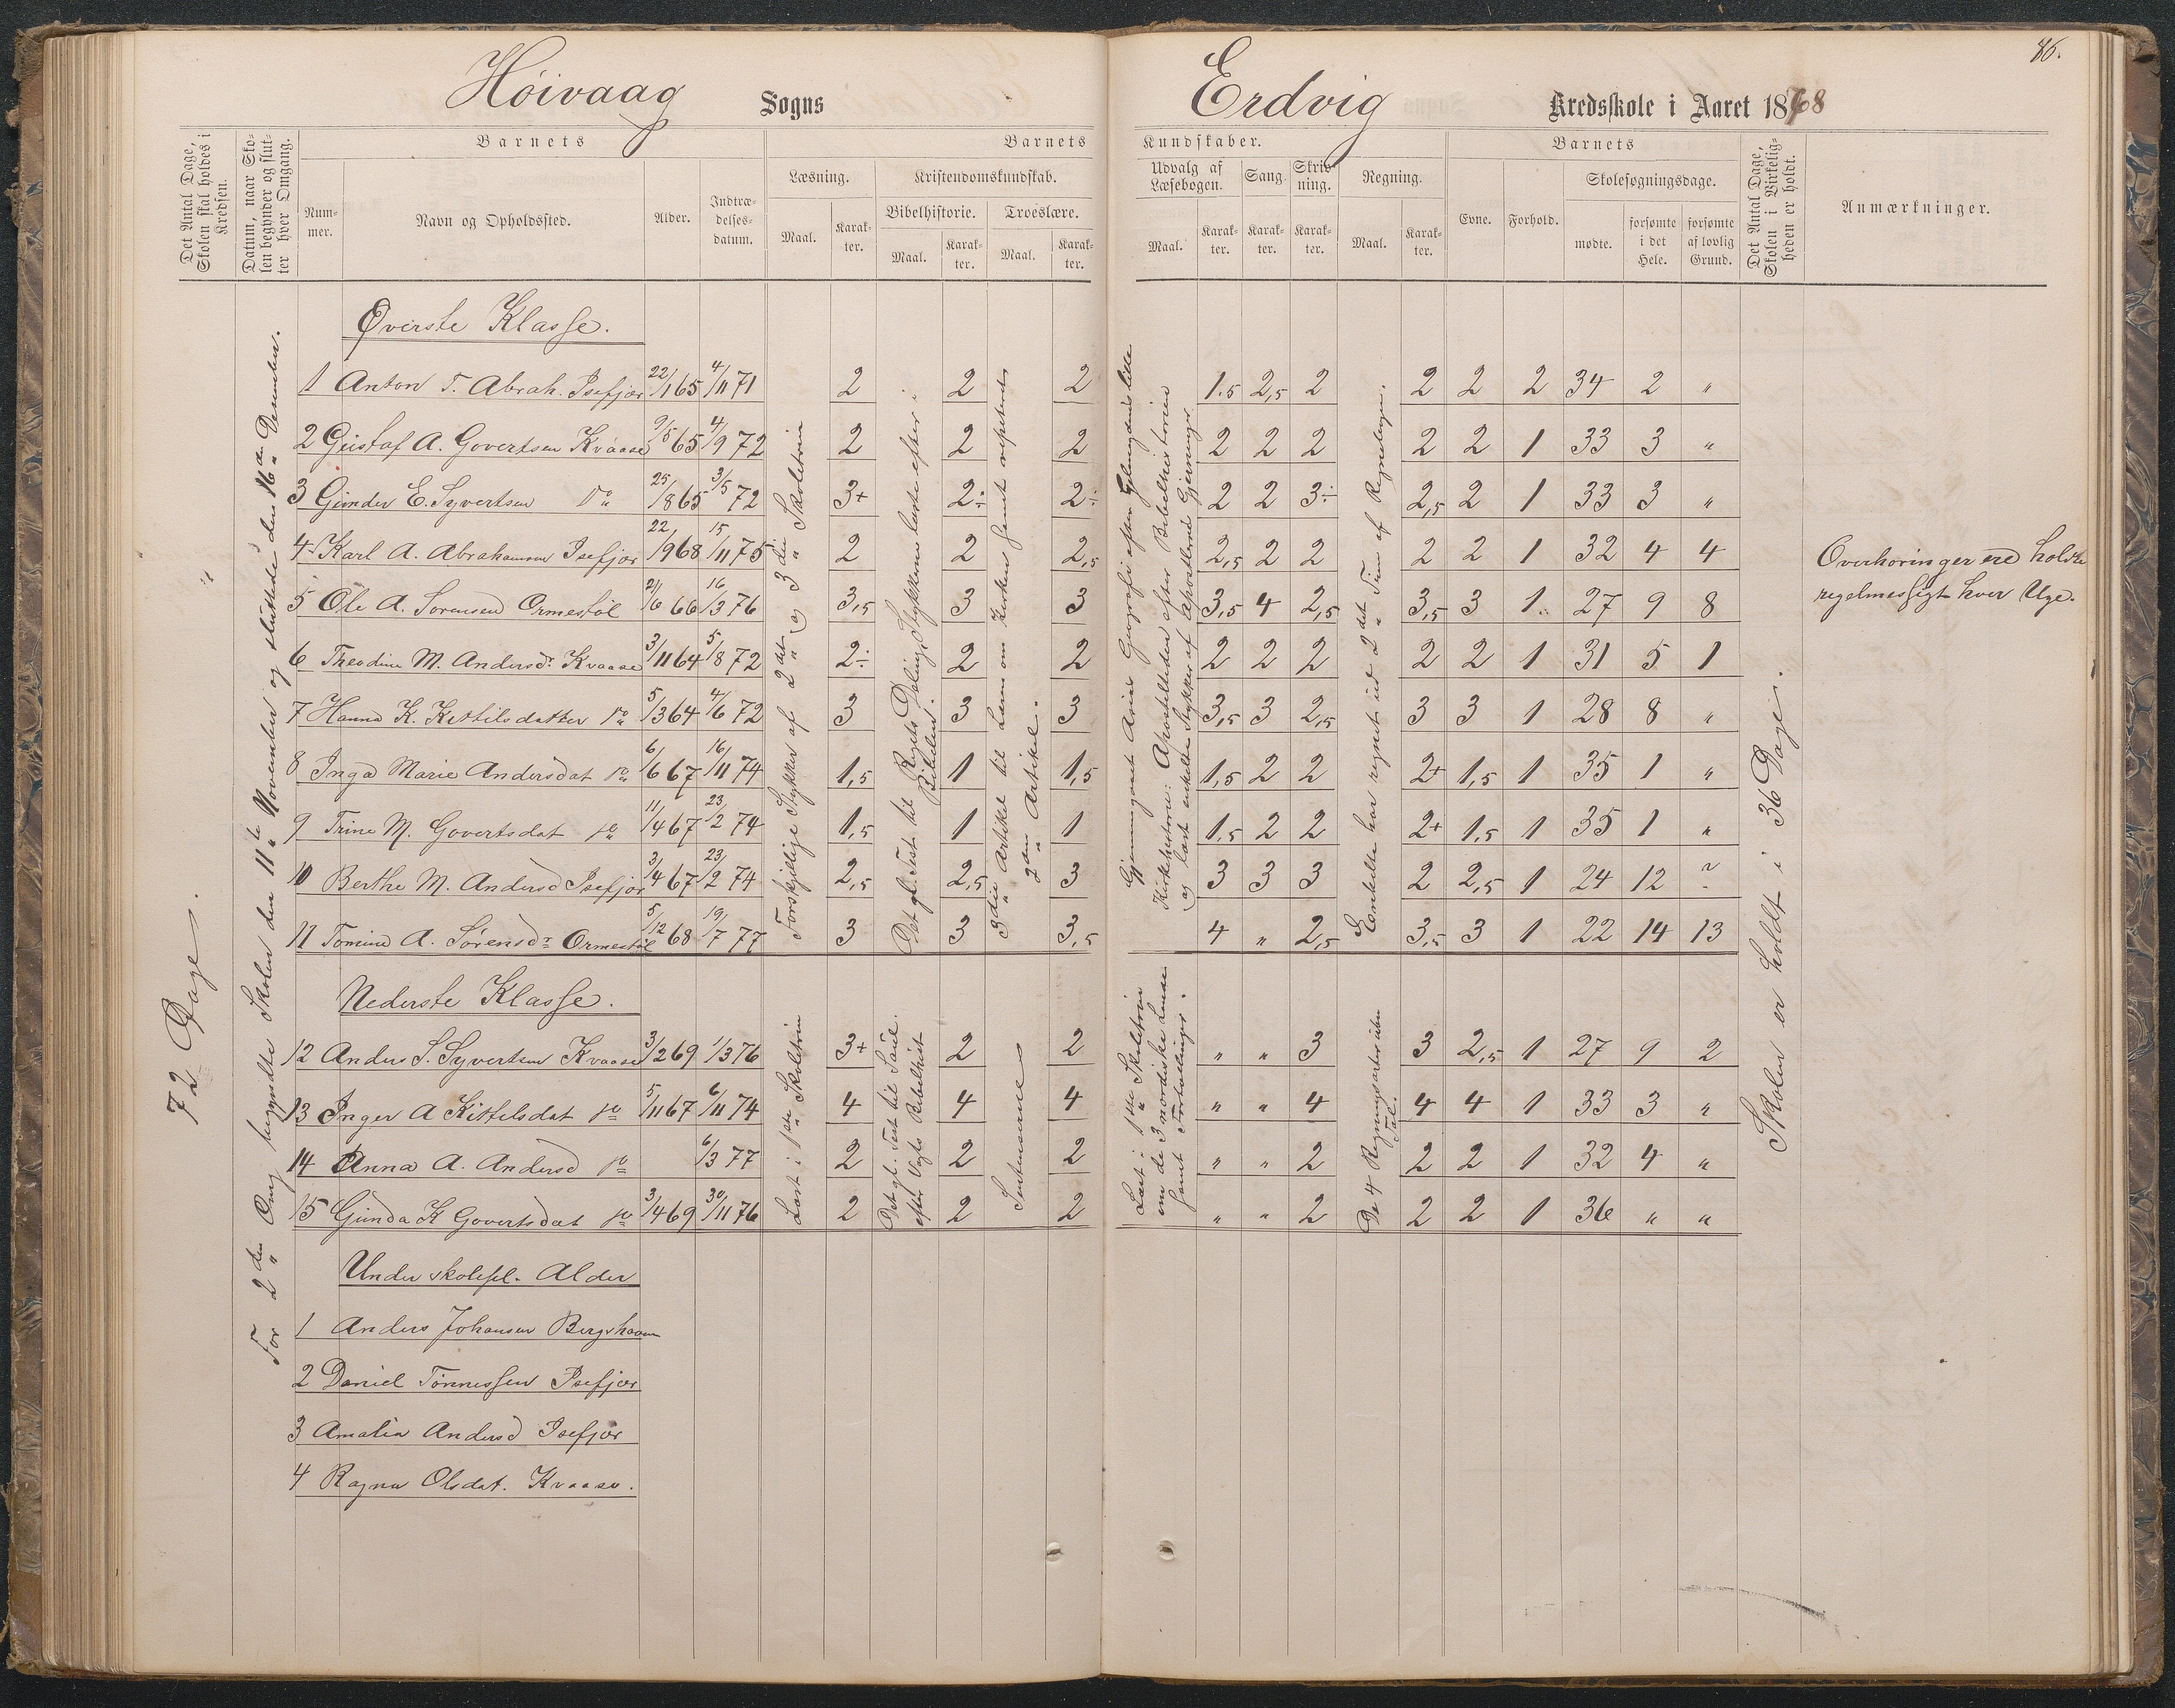 86.
Høivaag Sogns
Erdvig Kredsskole i Aaret 1878
Det Antal Dage, Skolen skal holdes i Kredsen.
Datum, naar Skolen begynder og slutter hver Omgang.
Barnets
Nummer.
Navn og Opholdssted.
Alder.
Indtrædelsesdatum.
Barnets Kundskaber.
Læsning.
Maal.
Karakter.
Kristendomskundskab.
Bibelhistorie.
Maal.
Karakter.
Troeslære.
Maal.
Karakter.
Udvalg af Læsebogen.
Maal.
Karakter.
Sang.
Karakter.
Skrivning.
Karakter.
Regning.
Maal.
Karakter.
Barnets
Evne.
Forhold.
Skolesøgningsdage.
mødte.
forsømte i det Hele.
forsømte af lovlig Grund.
Det Antal Dage, Skolen i Virkeligheden er holdt.
Anmærkninger.
72 Dage.
For 2den Omg begyndte Skolen den 11te November og sluttede den 16de Desember.
Øverste Klasse.
1 Anton T. Abrah. Isefjær 22/1 65 4/11 71 2 2 2 1.5 2,5 2 2 2 2 34 2 "
2 Gustaf A. Govertsen Kvaase 9/5 65 4/9 72 2 2 2 2 2 2 2 2 1 33 3 "
3 Gunder E. Syvertsen Do 25/8 65 3/5 72 3+ 2÷ 2÷ 2 2 3÷ 2,5 2 1 33 3 "
4 Karl A. Abrahamsen Isefjær 22/9 68 15/11 75 2 2 2,5 2,5 2 2 2 2 1 32 4 4
5 Ole A. Sørensen Ormestøl 21/6 66 16/3 76 3,5 3 3 3,5 4 2,5 3,5 3 1 27 9 8
6 Theodine M. Andersd. Kvaase 3/11 64 5/8 72 2÷ 2 2 2 2 2 2 2 1 31 5 1
7 Hanna K. Kittilsdatter Do 5/3 64 4/6 72 3 3 3 3,5 3 2,5 3 3 1 28 8 "
8 Inga Marie Andersdat Do 6/6 67 16/11 74 1,5 1 1,5 1,5 2 2 2+ 1,5 1 35 1 "
9 Trine M. Govertsdat do 11/4 67 23/2 74 1,5 1 1 1,5 2 2 2+ 1,5 1 35 1 "
10 Berthe M. Andersd Isefjær 3/4 67 23/2 74 2,5 2,5 3 3 3 3 2 2,5 1 24 12 2
11 Tomine A. Sørensdr Ormestøl 5/12 68 19/7 77 3 3 3,5 4 " 2,5 3,5 3 1 22 14 13
Forskjellige Stykker af 2det og 3die Skoletrin
Det gl. Test til Rigets Deling, Stykkerne læste efter i Bibelen.
3die Artikel til Læren om Kirken samt repeteret 2den Artikel.
Gjennemgaaet Asiens Geografi efter Geelmuydens lille
Kirkehistorie: Aposteltiden efter Bibelhistorien
og læst enkelte Stykker af Apostlernes Gjerninger.
Enkelte har regnet ud 2det Trin af Regnebogen.
Skolen er holdt i 36 Dage.
Overhøringer ere holdte
regelmessigt hver Uge.
Nederste Klasse.
12 Anders S. Syvertsen Kvaase 3/2 69 1/3 76 3+ 2 2 " " 3 3 2,5 1 27 9 2
13 Inger A Kittelsdat do 5/11 67 6/11 74 4 4 4 " " 4 4 4 1 33 3 "
14 Anna A. Andersd do 6/3 77 2 2 2 " " 2 2 2 1 32 4 "
15 Gunda K Govertsdat do 3/4 69 30/11 76 2 2 2 " " 2 2 2 1 36 " "
Læst i 1ste Skoletrin
Det gl. Test til Saul efter Vogts Bibelhist
Læst i 1ste Skoletrin om de 3 nordiske samt Fortællinger.
De 4 Regningsarter uden Tal.
Under skolepl. Alder
1 Anders Johansen Bergshavn
2 Daniel Tønnessen Isefjær
3 Amalia Andersd Isefjær
4 Ragna Olsdat. Kvaase.